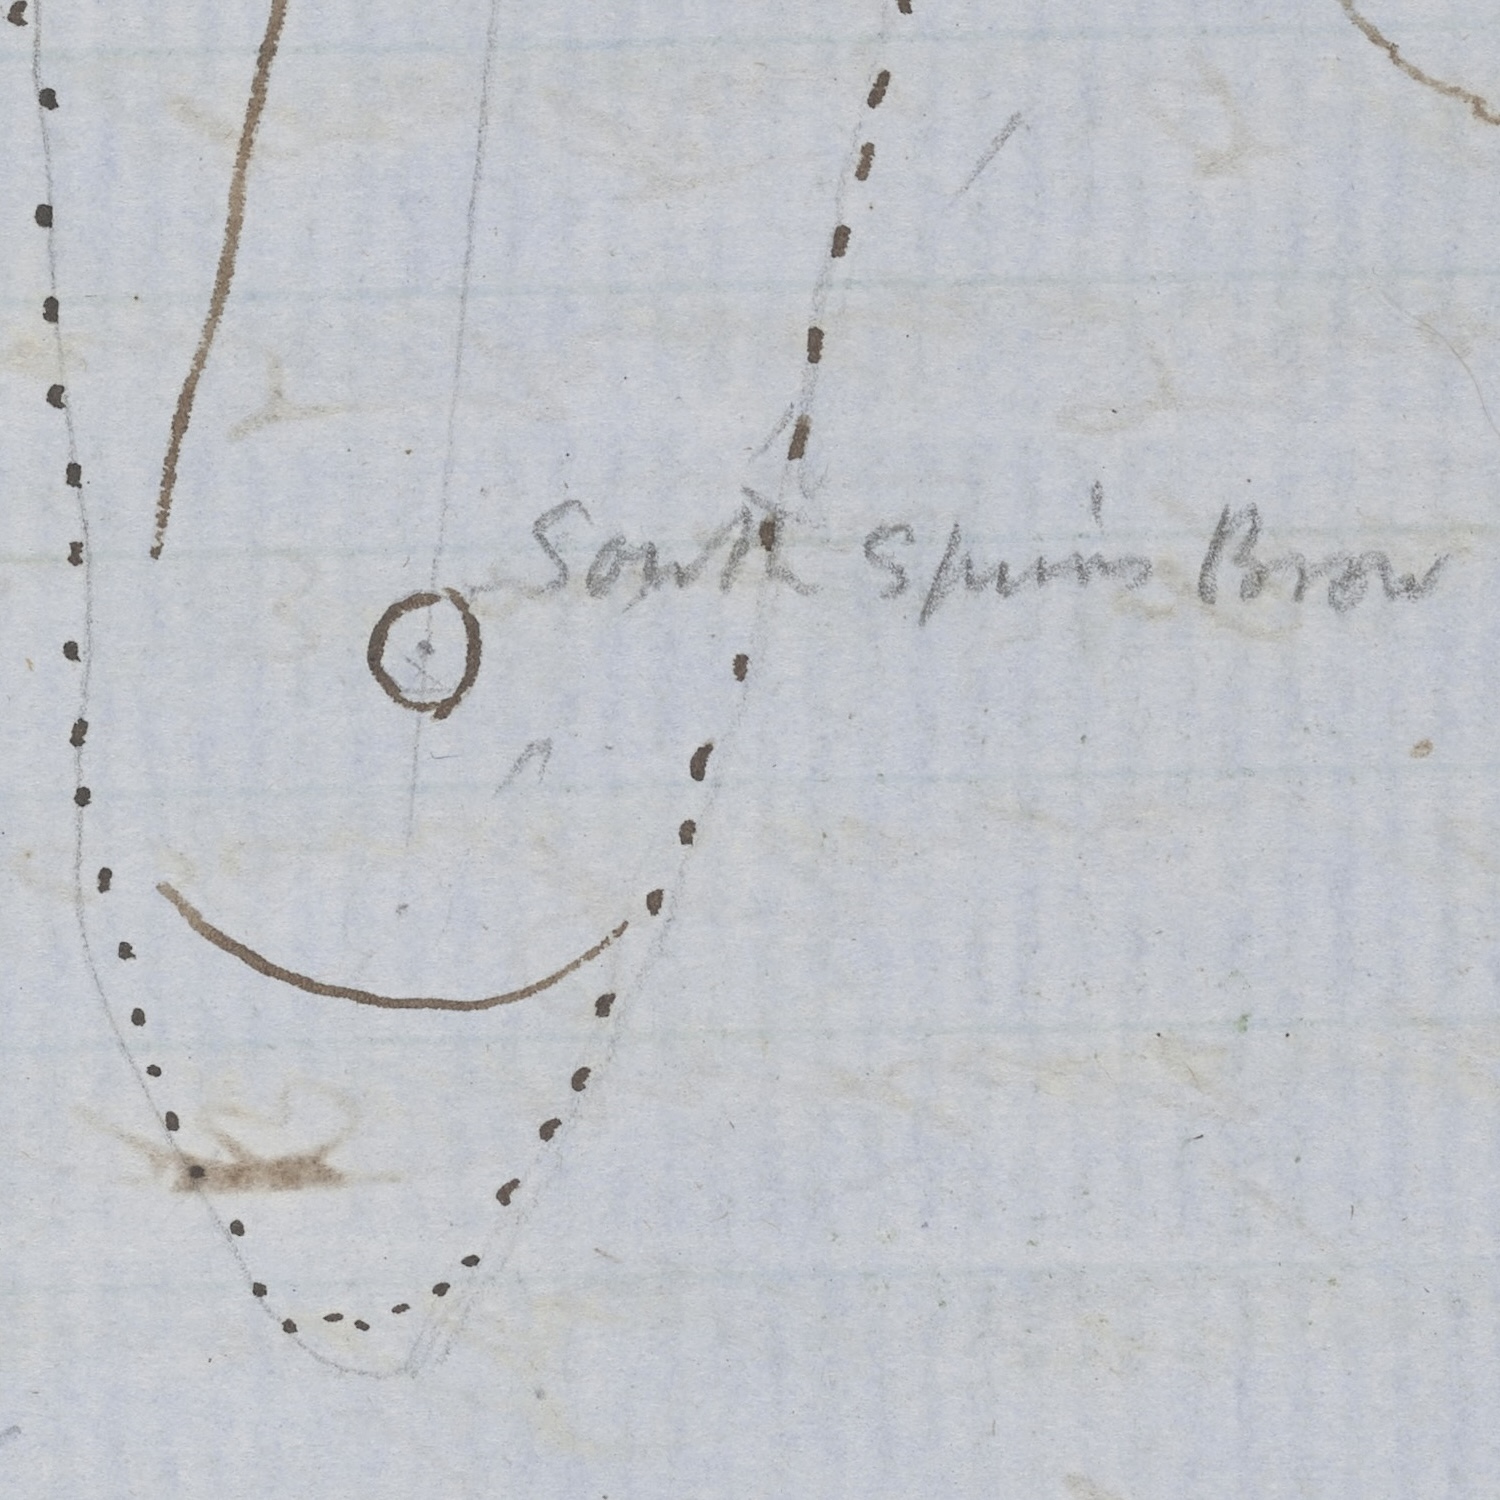 South Spuir's Brow